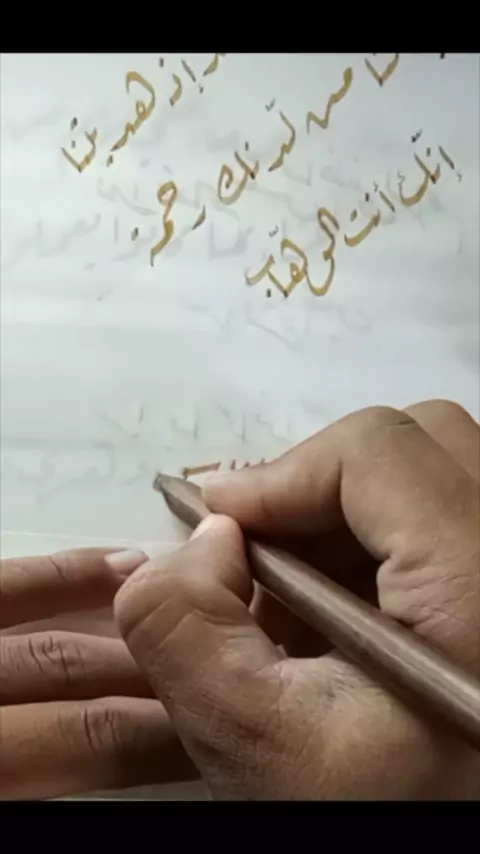 إذ هديتنا
من لدنك رحمة
إنّك أنت الوهّاب